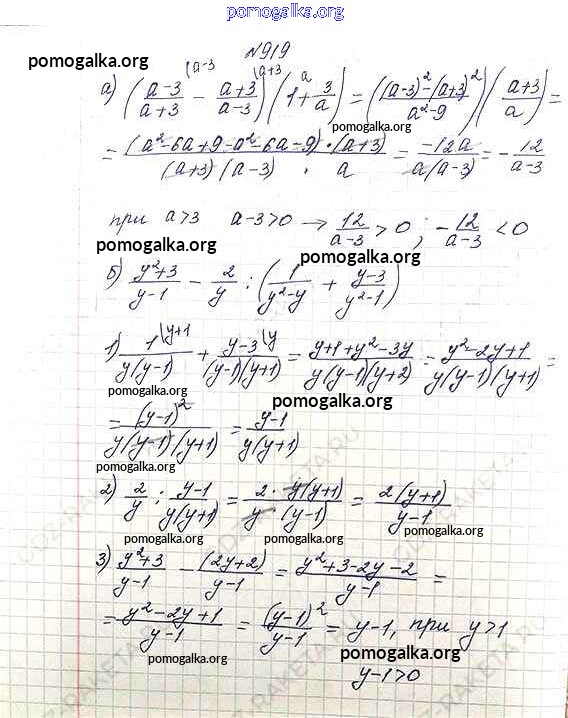 pomogalka.org
№919
pomogalka.org
а) ((a-3)/(a+3) \a-3 - (a+3)/(a-3) \a+3)(1 \a + 3/a) = (((a-3)² - (a+3)²)/(a²-9))((a+3)/a) =
pomogalka.org
= ((a²-6a+9-a²-6a-9)·(a+3))/((a+3)(a-3)·a) = -12a/(a(a-3)) = -12/(a-3)
при a>3 a-3>0 → 12/(a-3) > 0 ; -12/(a-3) < 0
pomogalka.org pomogalka.org
б) (y²+3)/(y-1) - 2/y : (1/(y²-y) + (y-3)/(y²-1))
1) 1\y+1/(y(y-1)) + y-3\y/((y-1)(y+1)) = (y+1+y²-3y)/(y(y-1)(y+2)) = (y²-2y+1)/(y(y-1)(y+1)) =
pomogalka.org
pomogalka.org
= (y-1)²/(y(y-1)(y+1)) = (y-1)/(y(y+1))
pomogalka.org
2) 2/y : (y-1)/(y(y+1)) = (2·y(y+1))/(y(y-1)) = 2(y+1)/(y-1)
pomogalka.org pomogalka.org pomogalka.org
3) (y²+3)/(y-1) - (2y+2)/(y-1) = (y²+3-2y-2)/(y-1) =
= (y²-2y+1)/(y-1) = (y-1)²/(y-1) = y-1, при y>1
pomogalka.org pomogalka.org
y-1>0
GDZ-RAKETA.RU